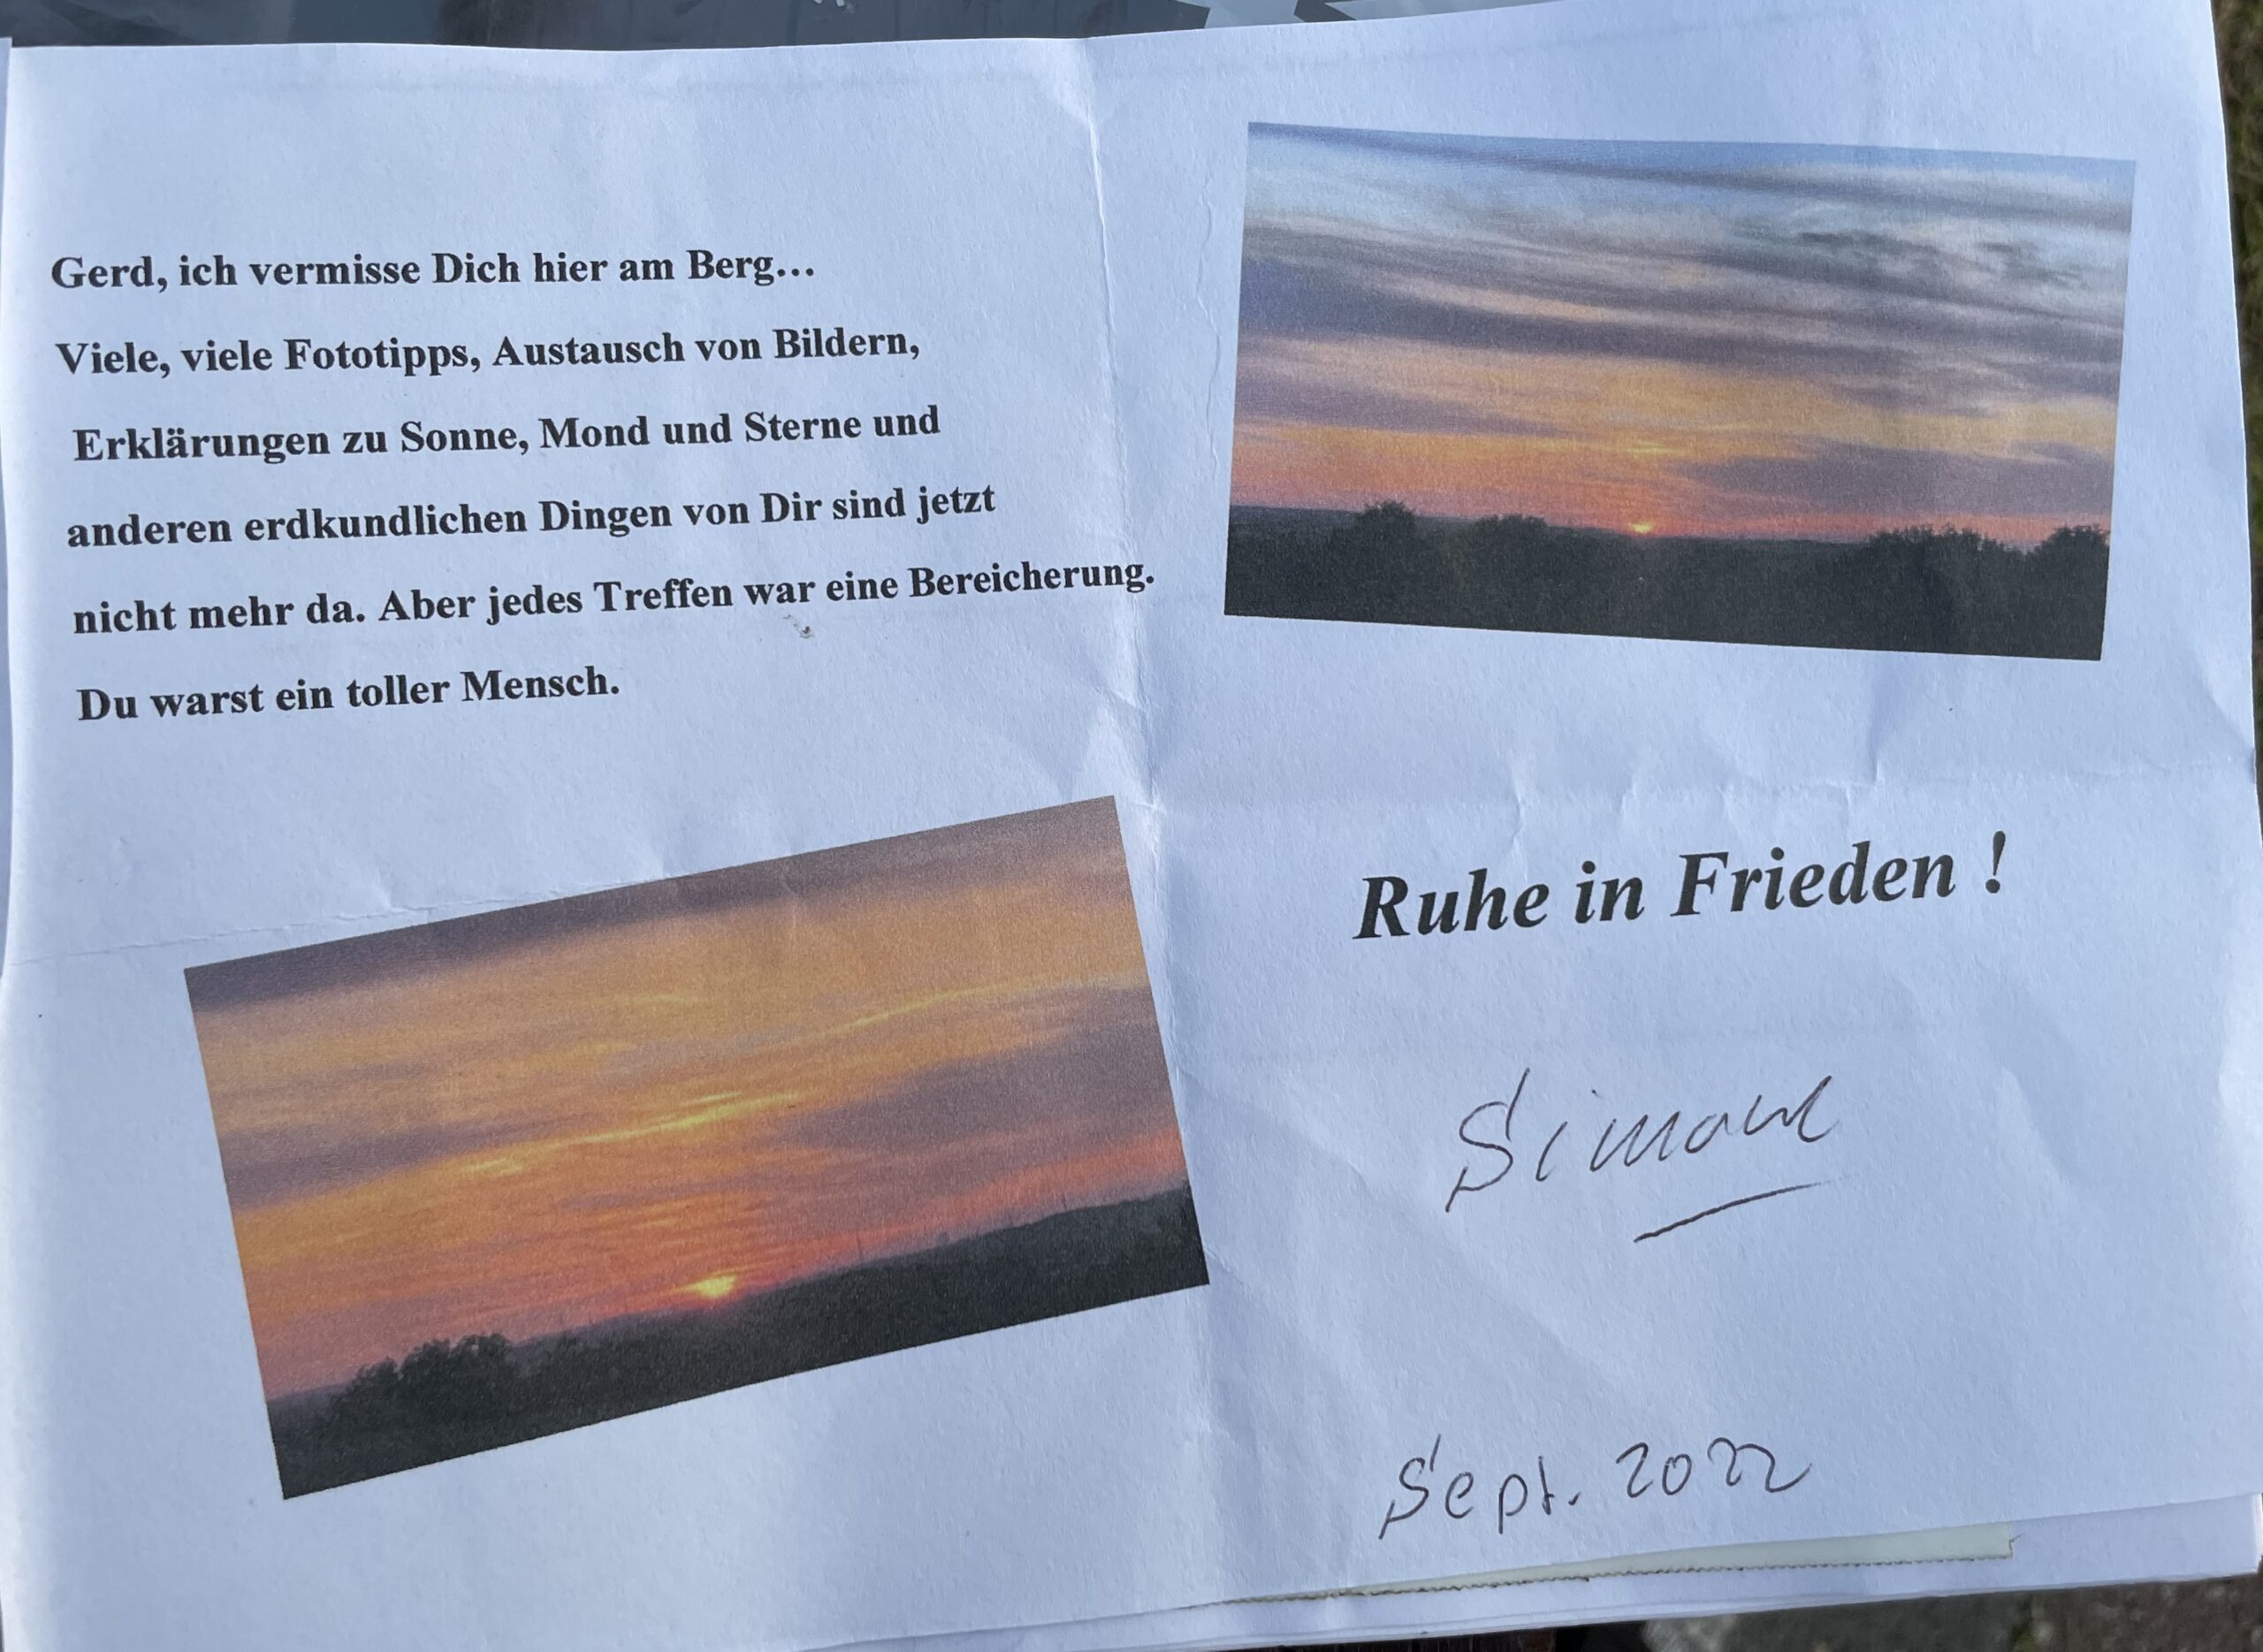 Gerd, ich vermisse Dich hier am Berg...
Viele, viele Fototipps, Austausch von Bildern,
Erklärungen zu Sonne, Mond und Sterne und
anderen erdkundlichen Dingen von Dir sind jetzt
nicht mehr da. Aber jedes Treffen war eine Bereicherung.
Du warst ein toller Mensch.
Ruhe in Frieden !
Simone
Sept. 2022